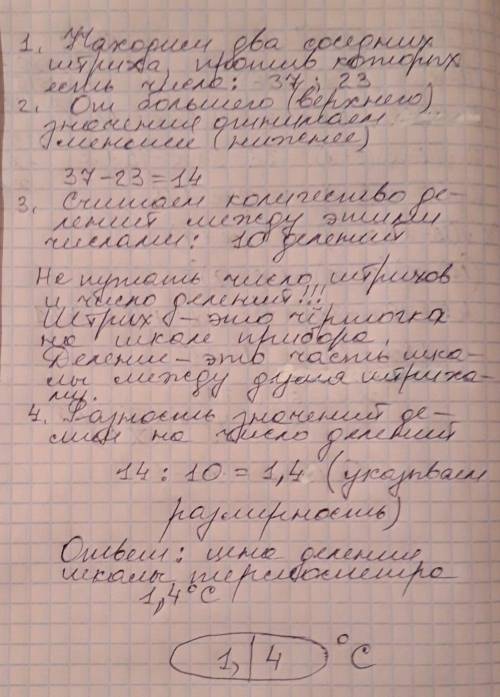 1. Находим два соседних
штриха, против которых
есть число: 37 ; 23
2. От большего (верхнего)
значения отнимаем
меньшее (нижнее)
37-23=14
3. Считаем количество де-
лений между этими
числами: 10 делений
Не путать число штрихов
и число делений!!!
Штрих - это чёрточка
на шкале прибора.
Деление - это часть шка-
лы между двумя штриха-
ми.
4. Разность значений де-
лим на число делений
14 : 10 = 1,4 (указываем
размерность)
Ответ: цена деления
шкалы термометра
1,4°C
1, 4 °C